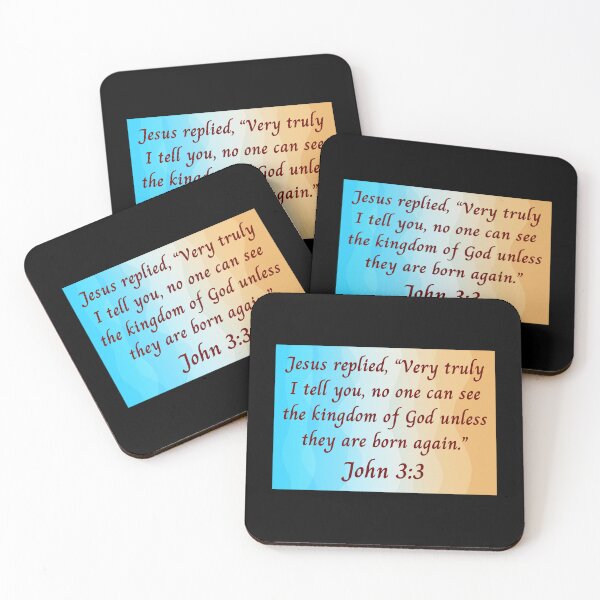 Jesus replied, “Very truly
I tell you, no one can see
the God
Jesus replied, “Very truly
I tell you, no one can see
the kingdom of God unless
they are born again.”
John 3:3
Jesus replied, “Very truly
I tell you, no one can see
the kingdom of God unless
they are born again.”
John 3:3
Jesus replied, “Very truly
I tell you, no one can see
the kingdom of God unless
they are born again.”
John 3:3